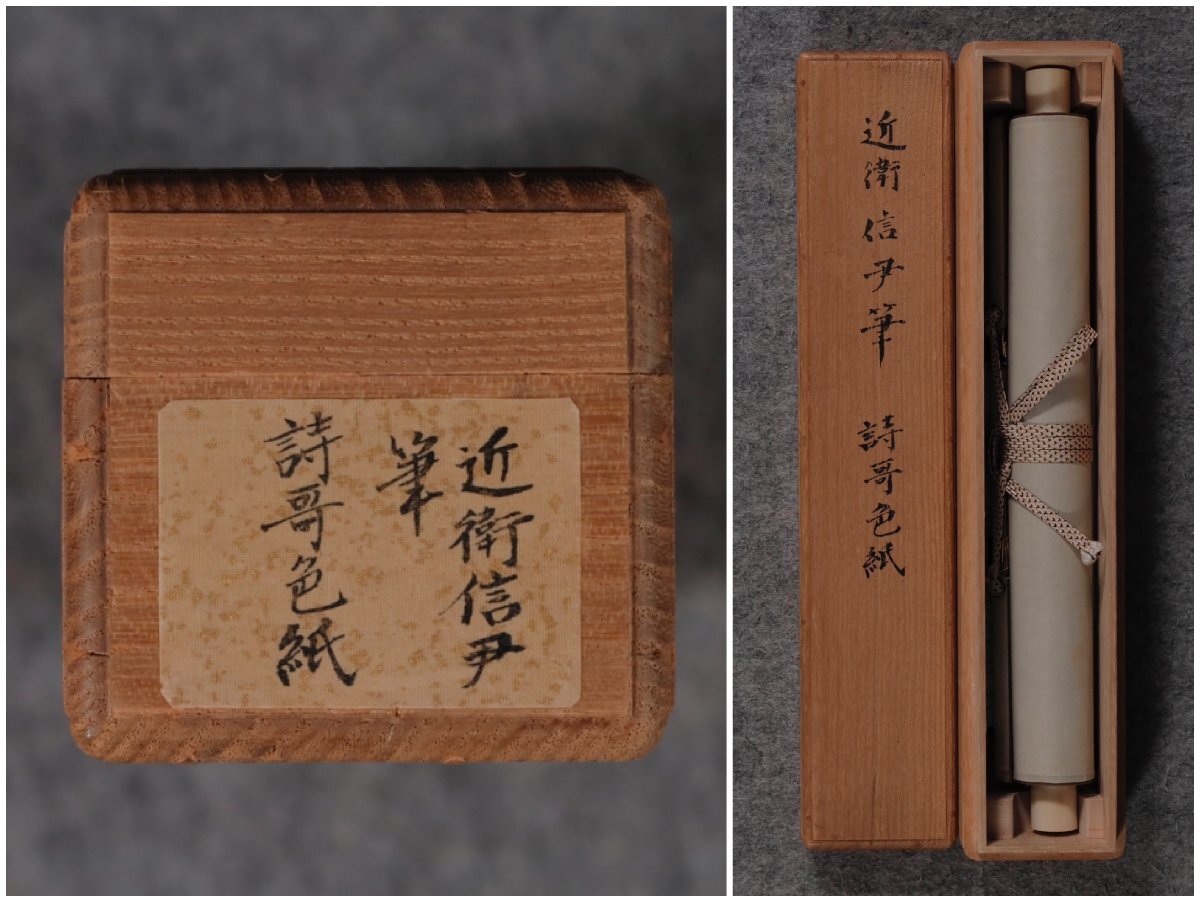 近衛信尹
筆
詩哥色紙
近衛信尹筆 詩哥色紙